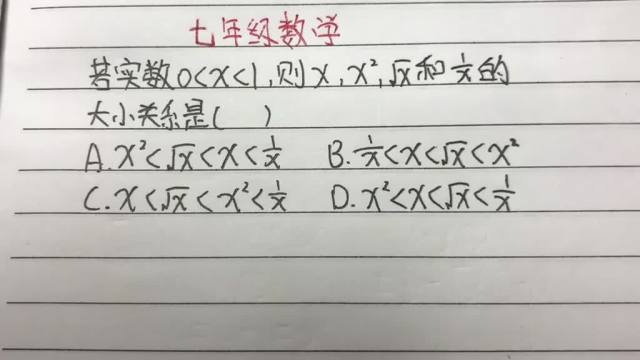 七年级数学
若实数0<x<1,则x,x²,√x和1/x的
大小关系是( )
A.x²<√x<x<1/x B.1/x<x<√x<x²
C.x<√x<x²<1/x D.x²<x<√x<1/x